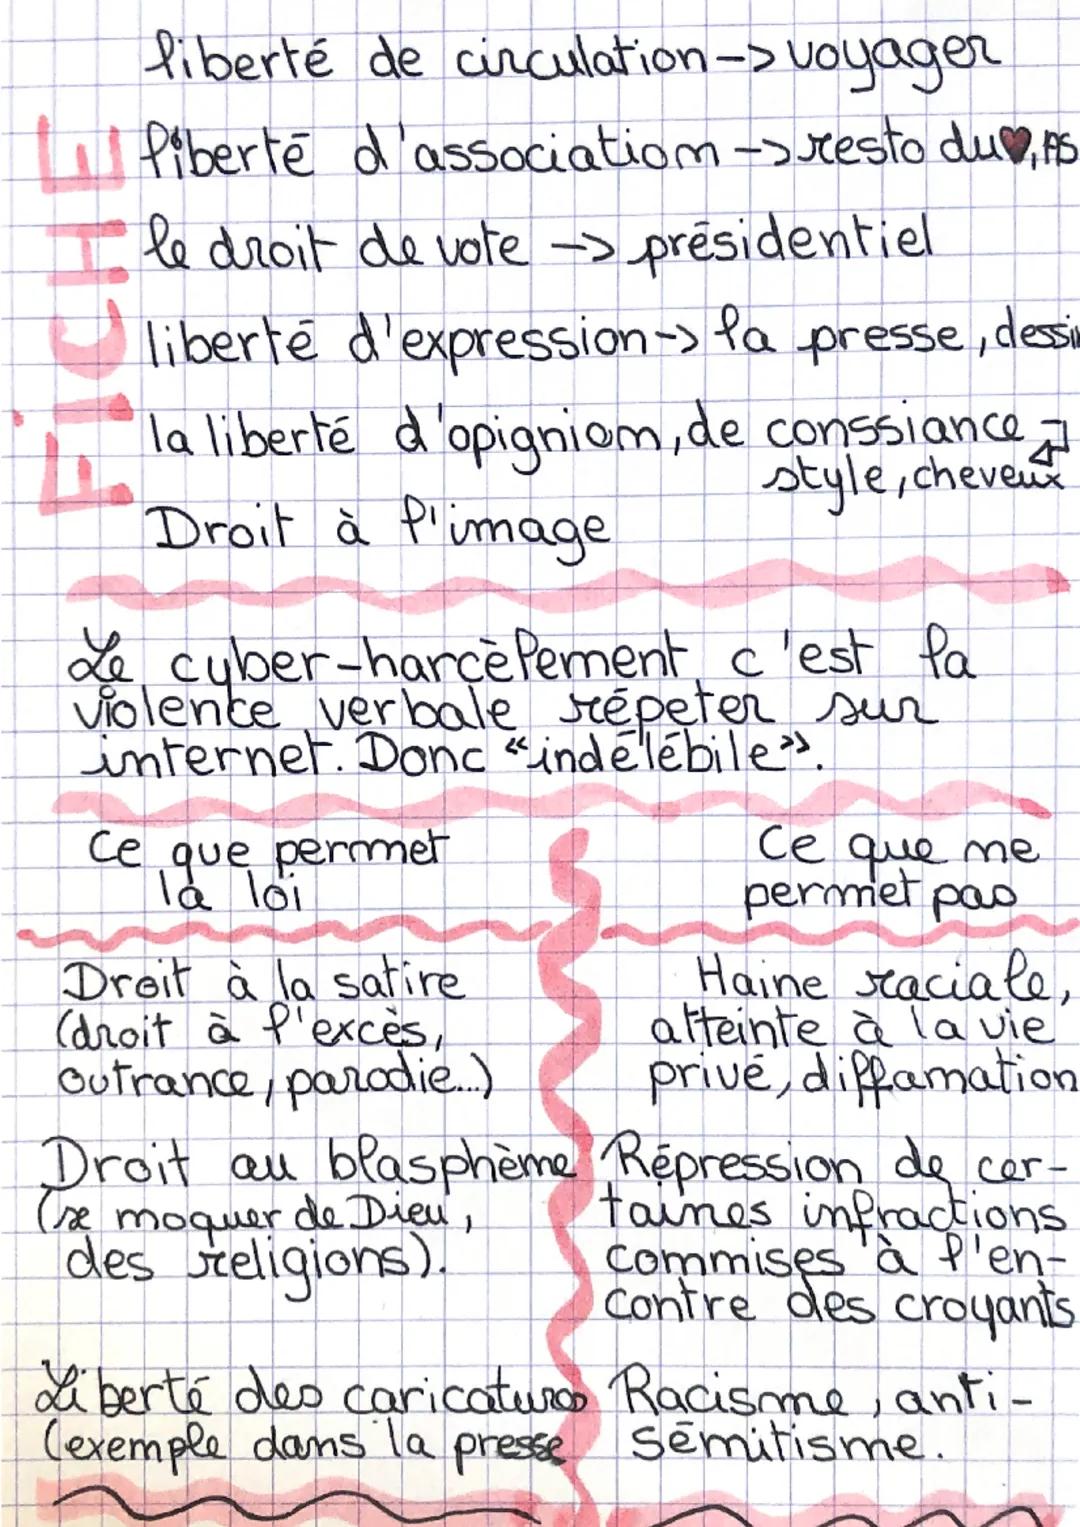 liberté de circulation -> voyager
liberté d'association -> resto du ♥, AS
le droit de vote -> présidentiel
liberté d'expression -> la presse, dessin
la liberté d'opigniom, de conssiance
style, cheveux
Droit à l'image
FICHE
Le cyber-harcèlement c'est la
violence verbale répeter sur
internet. Donc «indélébile».
Ce que permmet
la loi
Droit à la satire
(droit à l'excès,
outrance, parodie...)
Droit au blasphème
(se moquer de Dieu,
des religions).
Liberté des caricatures
(exemple dans la presse
Ce que ne
permet pas
Haine raciale,
atteinte à la vie
privé, diffamation
Répression de cer-
taines infractions
commises à l'en-
contre des croyants
Racisme, anti-
sémitisme.